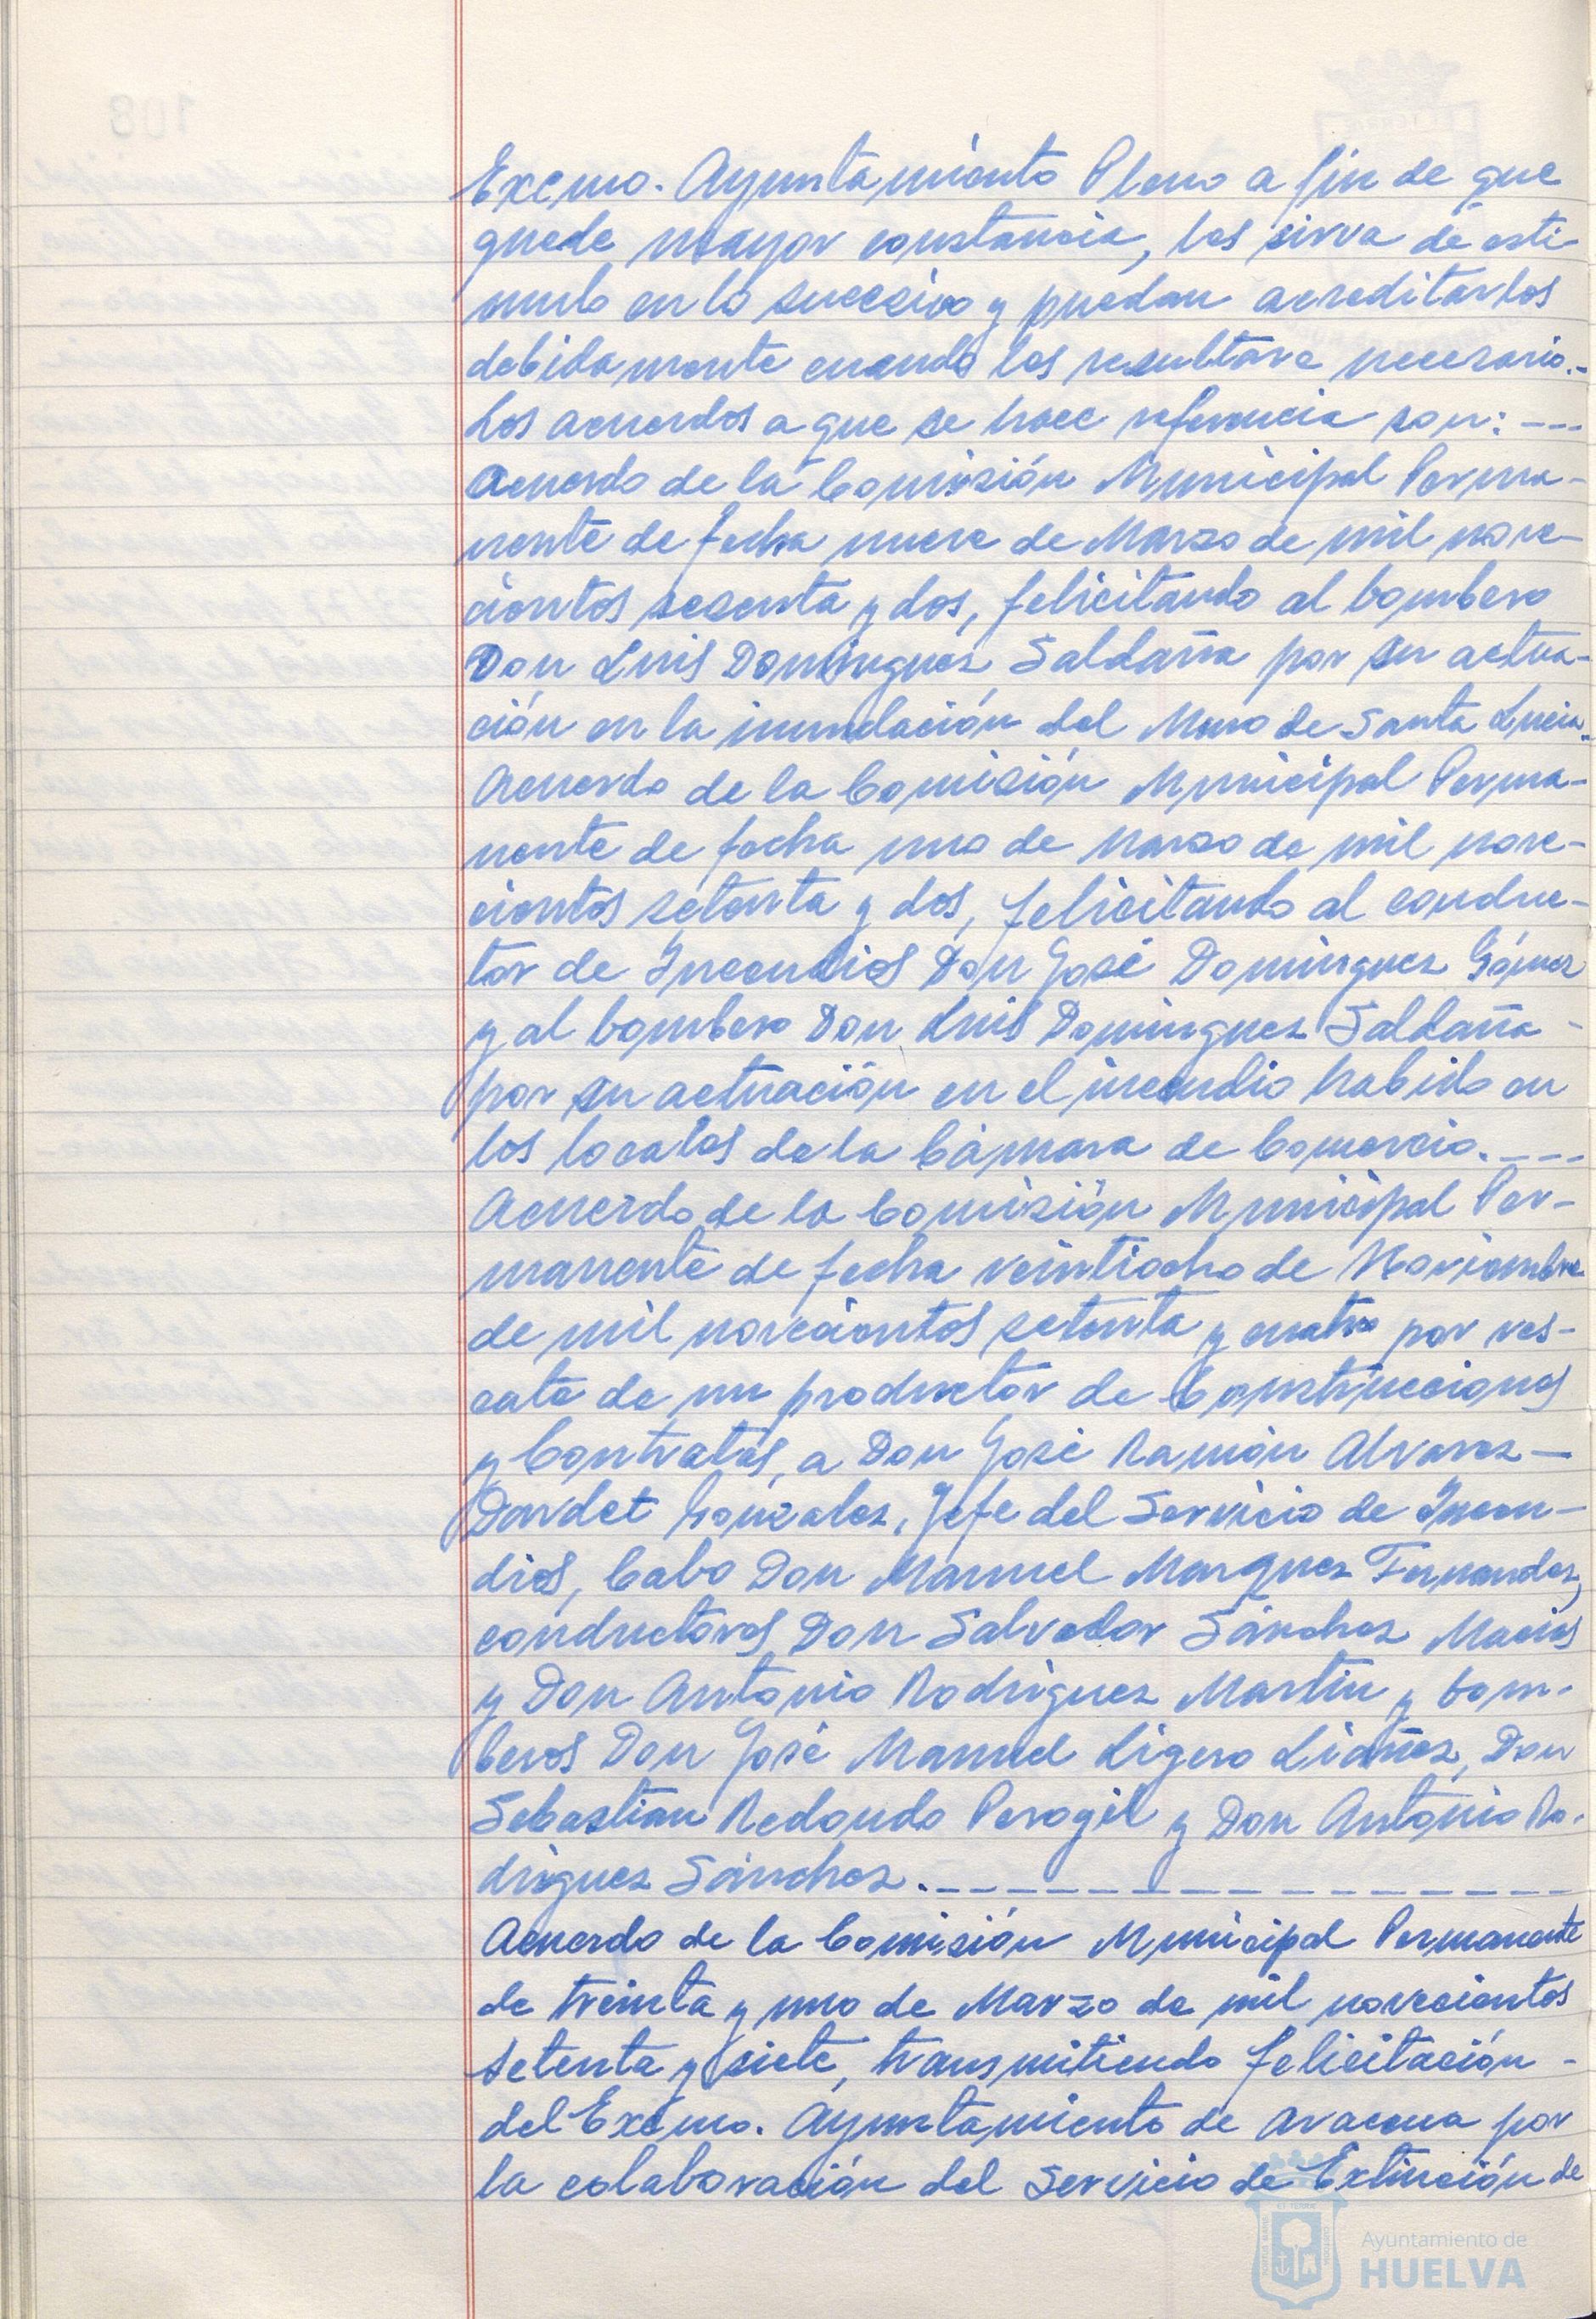 Excmo. Ayuntamiento Pleno a fin de que
quede mayor constancia, les sirva de estí-
mulo en lo sucesivo y puedan acreditarlos
debidamente cuando les resultare necesario.-
Los acuerdos a que se hace referencia son: ---
Acuerdo de la Comisión Municipal Perma-
nente de fecha nueve de Marzo de mil nove-
cientos sesenta y dos, felicitando al bombero
Don Luis Dominguez Saldaña por su actua-
ción en la inundación del Muro de Santa Lucia.-
Acuerdo de la Comisión Municipal Perma-
nente de fecha uno de Marzo de mil nove-
cientos setenta y dos, felicitando al conduc-
tor de Incendios Don José Dominguez Gómez
y al bombero Don Luis Dominguez Saldaña -
por su actuación en el incendio habido en
los locales de la Cámara de Comercio.---
Acuerdo de la Comisión Municipal Per-
manente de fecha veintiocho de Noviembre
de mil novecientos setenta y cuatro por res-
cate de un productor de Construcciones
y Contratas, a Don José Ramón Alvarez-
Dardet Gónzalez, Jefe del Servicio de Incen-
dios, Cabo Don Manuel Marquez Fernandez,
conductores Don Salvador Sánchez Macias
y Don Antonio Rodriguez Martín y bom-
beros Don José Manuel Ligero Liañez, Don
Sebastian Redondo Perogil y Don Antonio Ro-
driguez Sánchez.---------------
Acuerdo de la Comisión Municipal Permanente
de treinta y uno de Marzo de mil novecientos
setenta y siete, transmitiendo felicitación -
del Excmo. Ayuntamiento de Aracena por
la colaboración del Servicio de Extinción de
Ayuntamiento de
HUELVA